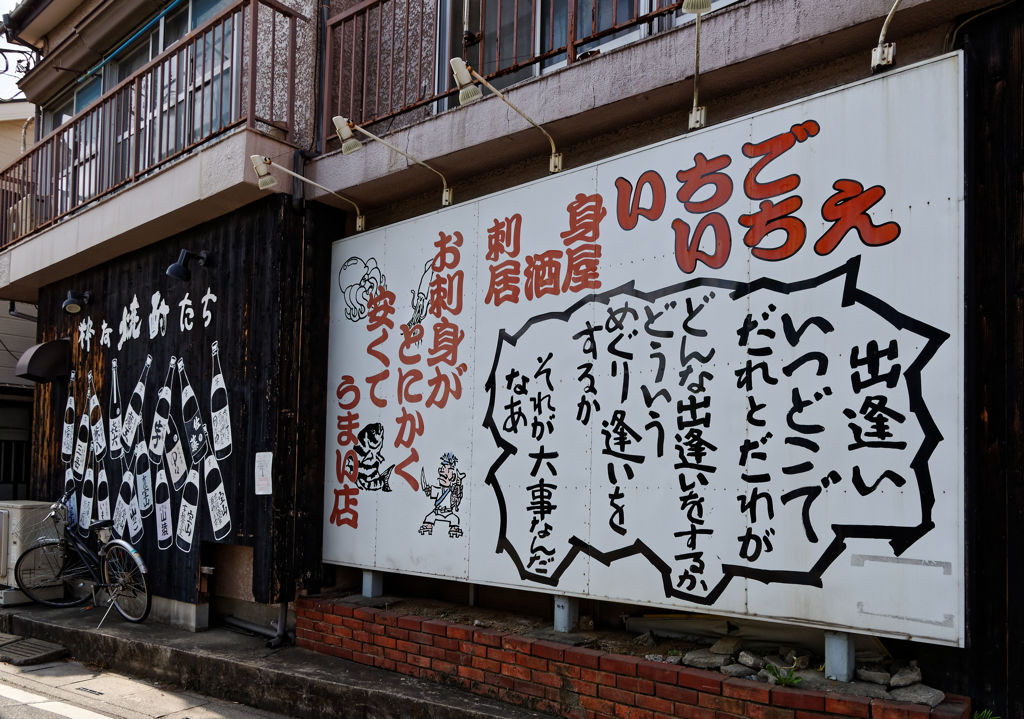 いちごいちえ
刺身
居酒屋
出逢い
いつどこで
だれとだれが
どんな出逢いをするか
どういう
めぐり逢いを
するか
それが大事なんだ
なあ
お刺身が
とにかく
安くて
うまい店
焼酎たち